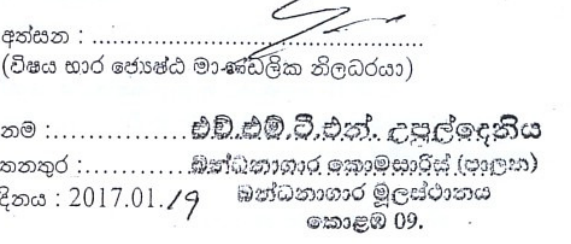 අත්සන : ........................................
(විෂය භාර ජ්‍යෙෂ්ඨ මාණ්ඩලික නිලධරයා)
නම :................ එච්.එම්.ටී.එන්. උපුල්දෙනිය
තනතුර :............. බන්ධනාගාර කොමසාරිස් (පාලන)
දිනය : 2017.01.19 බන්ධනාගාර මූලස්ථානය
කොළඹ 09.